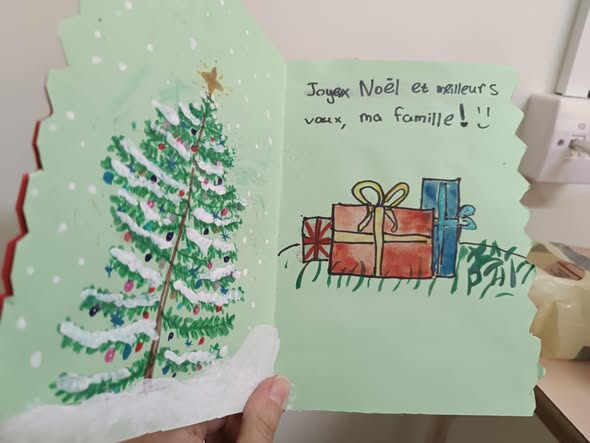 Joyex Noël et meilleurs
vœux, ma famille! :)
10